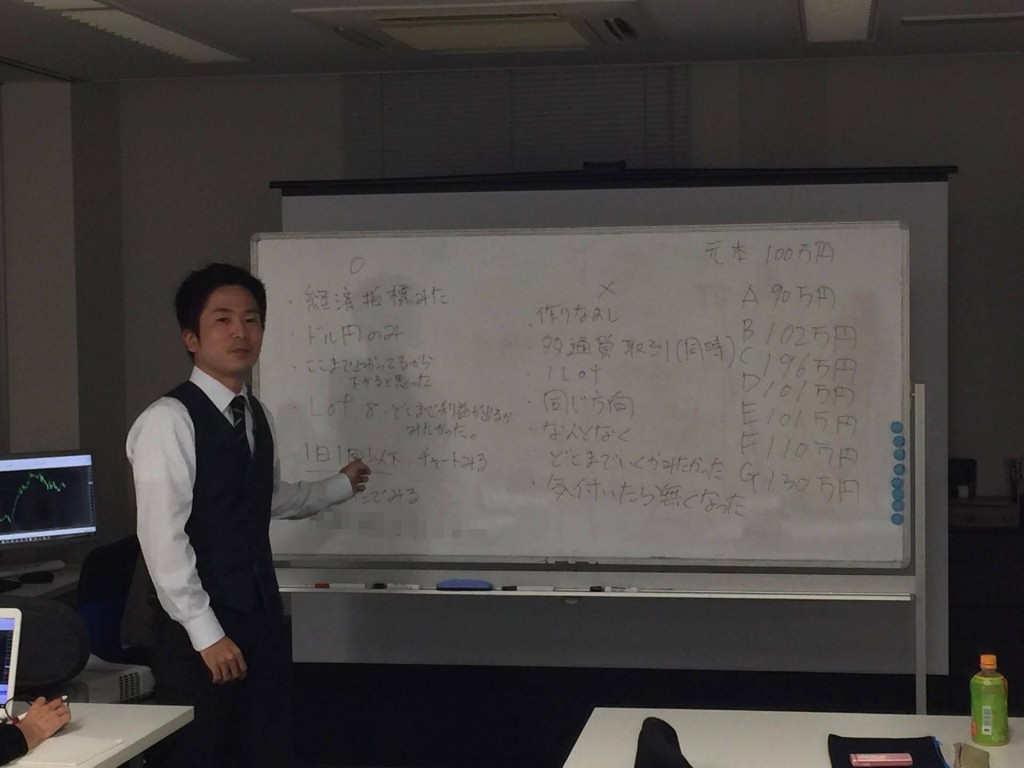 ○
・経済指標みた
・ドル円のみ
・ここまで上がってるから
下がると思った
・Lot 8. どこまで利益が出るか
みたかった。
1日1回以下. チャートみる
でみる
×
・作りなおし
多通貨取引(同時)
・1Lot
・同じ方向
・なんとなく
どこまでいくかみたかった
・気付いたら無くなった
元本 100万円
A 90万円
B 102万円
C 196万円
D 101万円
E 101万円
F 110万円
G 130万円